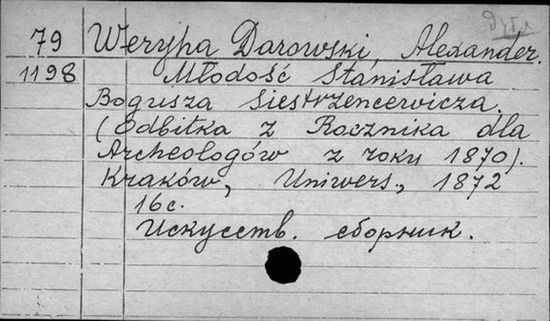 79 Weryha Darowski, Alexander.
1198 Młodość Stanisława
Bogusza Siestrzencewicza.
(Odbitka z Rocznika dla
Archeologów z roku 1870).
Kraków, Uniwers., 1872
16 с.
Искусств. сборник.